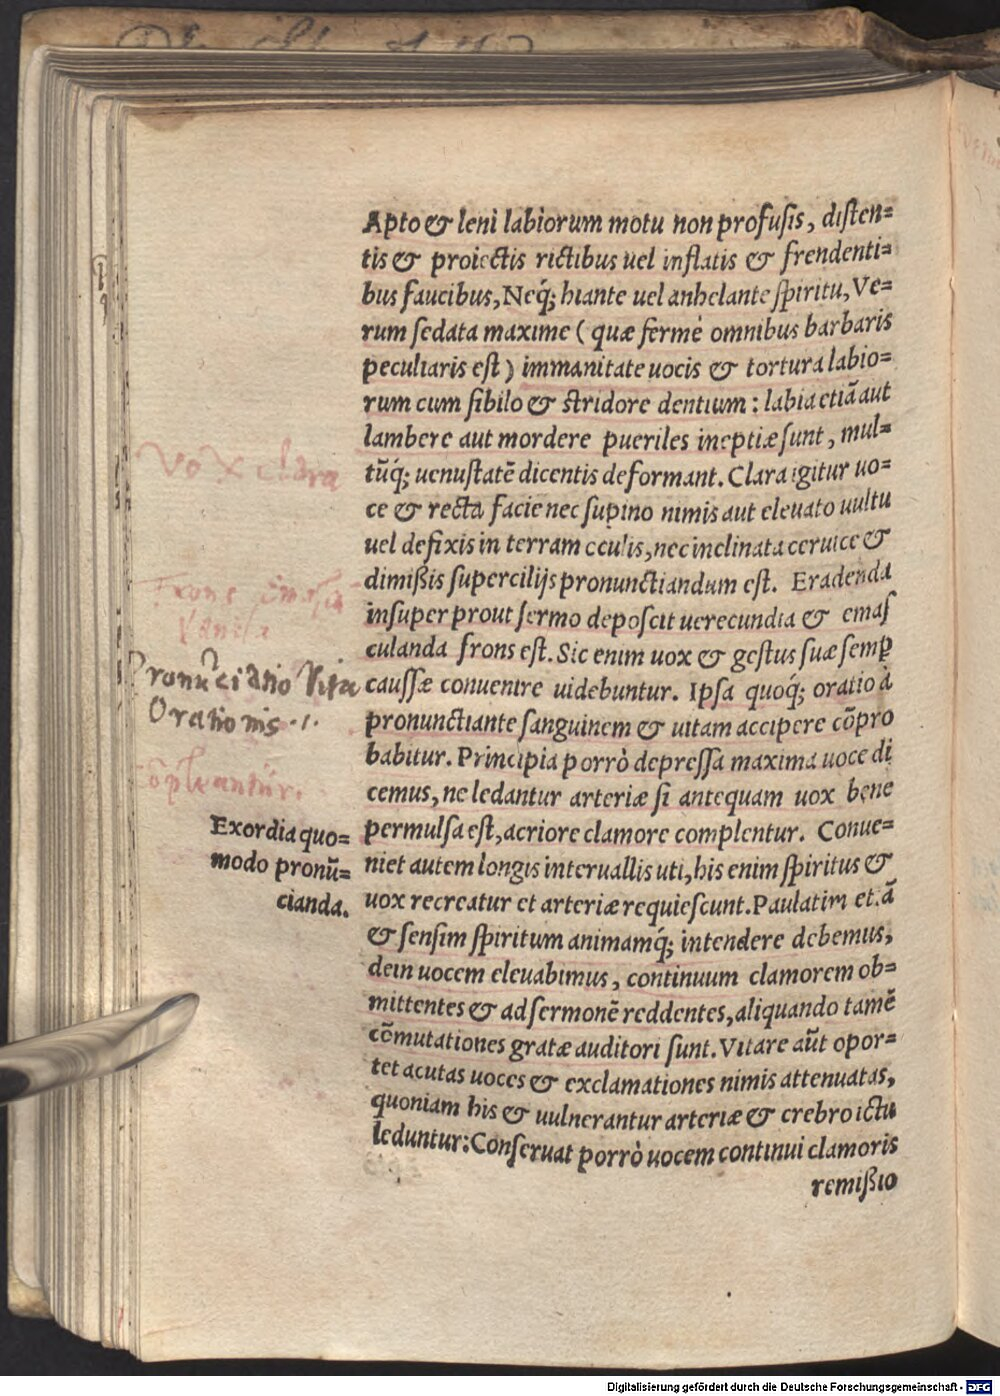 Apto & leni labiorum motu non profusis, disten=
tis & proiectis rictibus uel inflatis & frendenti=
bus faucibus, Neq́; hiante uel anhelante spiritu, Ve=
rum sedata maxime ( quæ fermè omnibus barbaris
peculiaris est ) immanitate uocis & tortura labio=
rum cum sibilo & stridore dentium : labia etiã aut
lambere aut mordere pueriles ineptiæ sunt, mul=
tũq́; uenustatẽ dicentis deformant. Clara igitur uo=
ce & recta facie nec supino nimis aut eleuato uultu
uel defixis in terram oculis, nec inclinata ceruice &
dimißis supercilijs pronunctiandum est. Eradenda
insuper prout sermo deposcit uerecundia & emas
culanda frons est. Sic enim uox & gestus suæ semꝑ
caussæ conuenire uidebuntur. Ipsa quoq́; oratio à
pronunctiante sanguinem & uitam accipere cõpro
babitur. Principia porrò depressa maxima uoce di
cemus, ne ledantur arteriæ si antequam uox bene
permulsa est, acriore clamore complentur. Conue=
niet autem longis interuallis uti, his enim spiritus &
uox recreatur et arteriæ requiescunt. Paulatim et.ã
& sensim spiritum animamq́; intendere debemus,
dein uocem eleuabimus, continuum clamorem ob=
mittentes & ad sermonẽ reddentes, aliquando tamẽ
cõmutationes gratæ auditori sunt. Vitare aũt opor=
tet acutas uoces & exclamationes nimis attenuatas,
quoniam his & uulnerantur arteriæ & crebro ictu
leduntur: Conseruat porrò uocem continui clamoris
remißio
Vox clara
Frons
Pronũciatio Vita
Orationis
Exordia quo=
modo pronũ=
cianda.
Digitalisierung gefördert durch die Deutsche Forschungsgemeinschaft - DFG